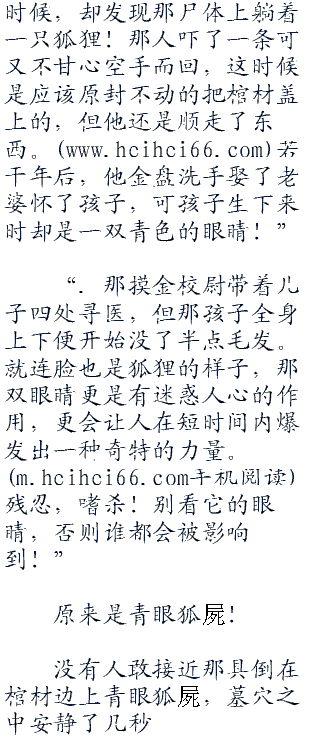 时候，却发现那尸体上躺着
一只狐狸！那人吓了一条可
又不甘心空手而回，这时候
是应该原封不动的把棺材盖
上的，但他还是顺走了东
西。(www.hcihci66.com)若
干年后，他金盘洗手娶了老
婆怀了孩子，可孩子生下来
时却是一双青色的眼睛！”
“．那摸金校尉带着儿
子四处寻医，但那孩子全身
上下便开始没了半点毛发。
就连脸也是狐狸的样子，那
双眼睛更是有迷惑人心的作
用，更会让人在短时间内爆
发出一种奇特的力量。
(m.hcihci66.com手机阅读)
残忍，嗜杀！别看它的眼
睛，否则谁都会被影响
到！”
原来是青眼狐屍！
没有人敢接近那具倒在
棺材边上青眼狐屍，墓穴之
中安静了几秒